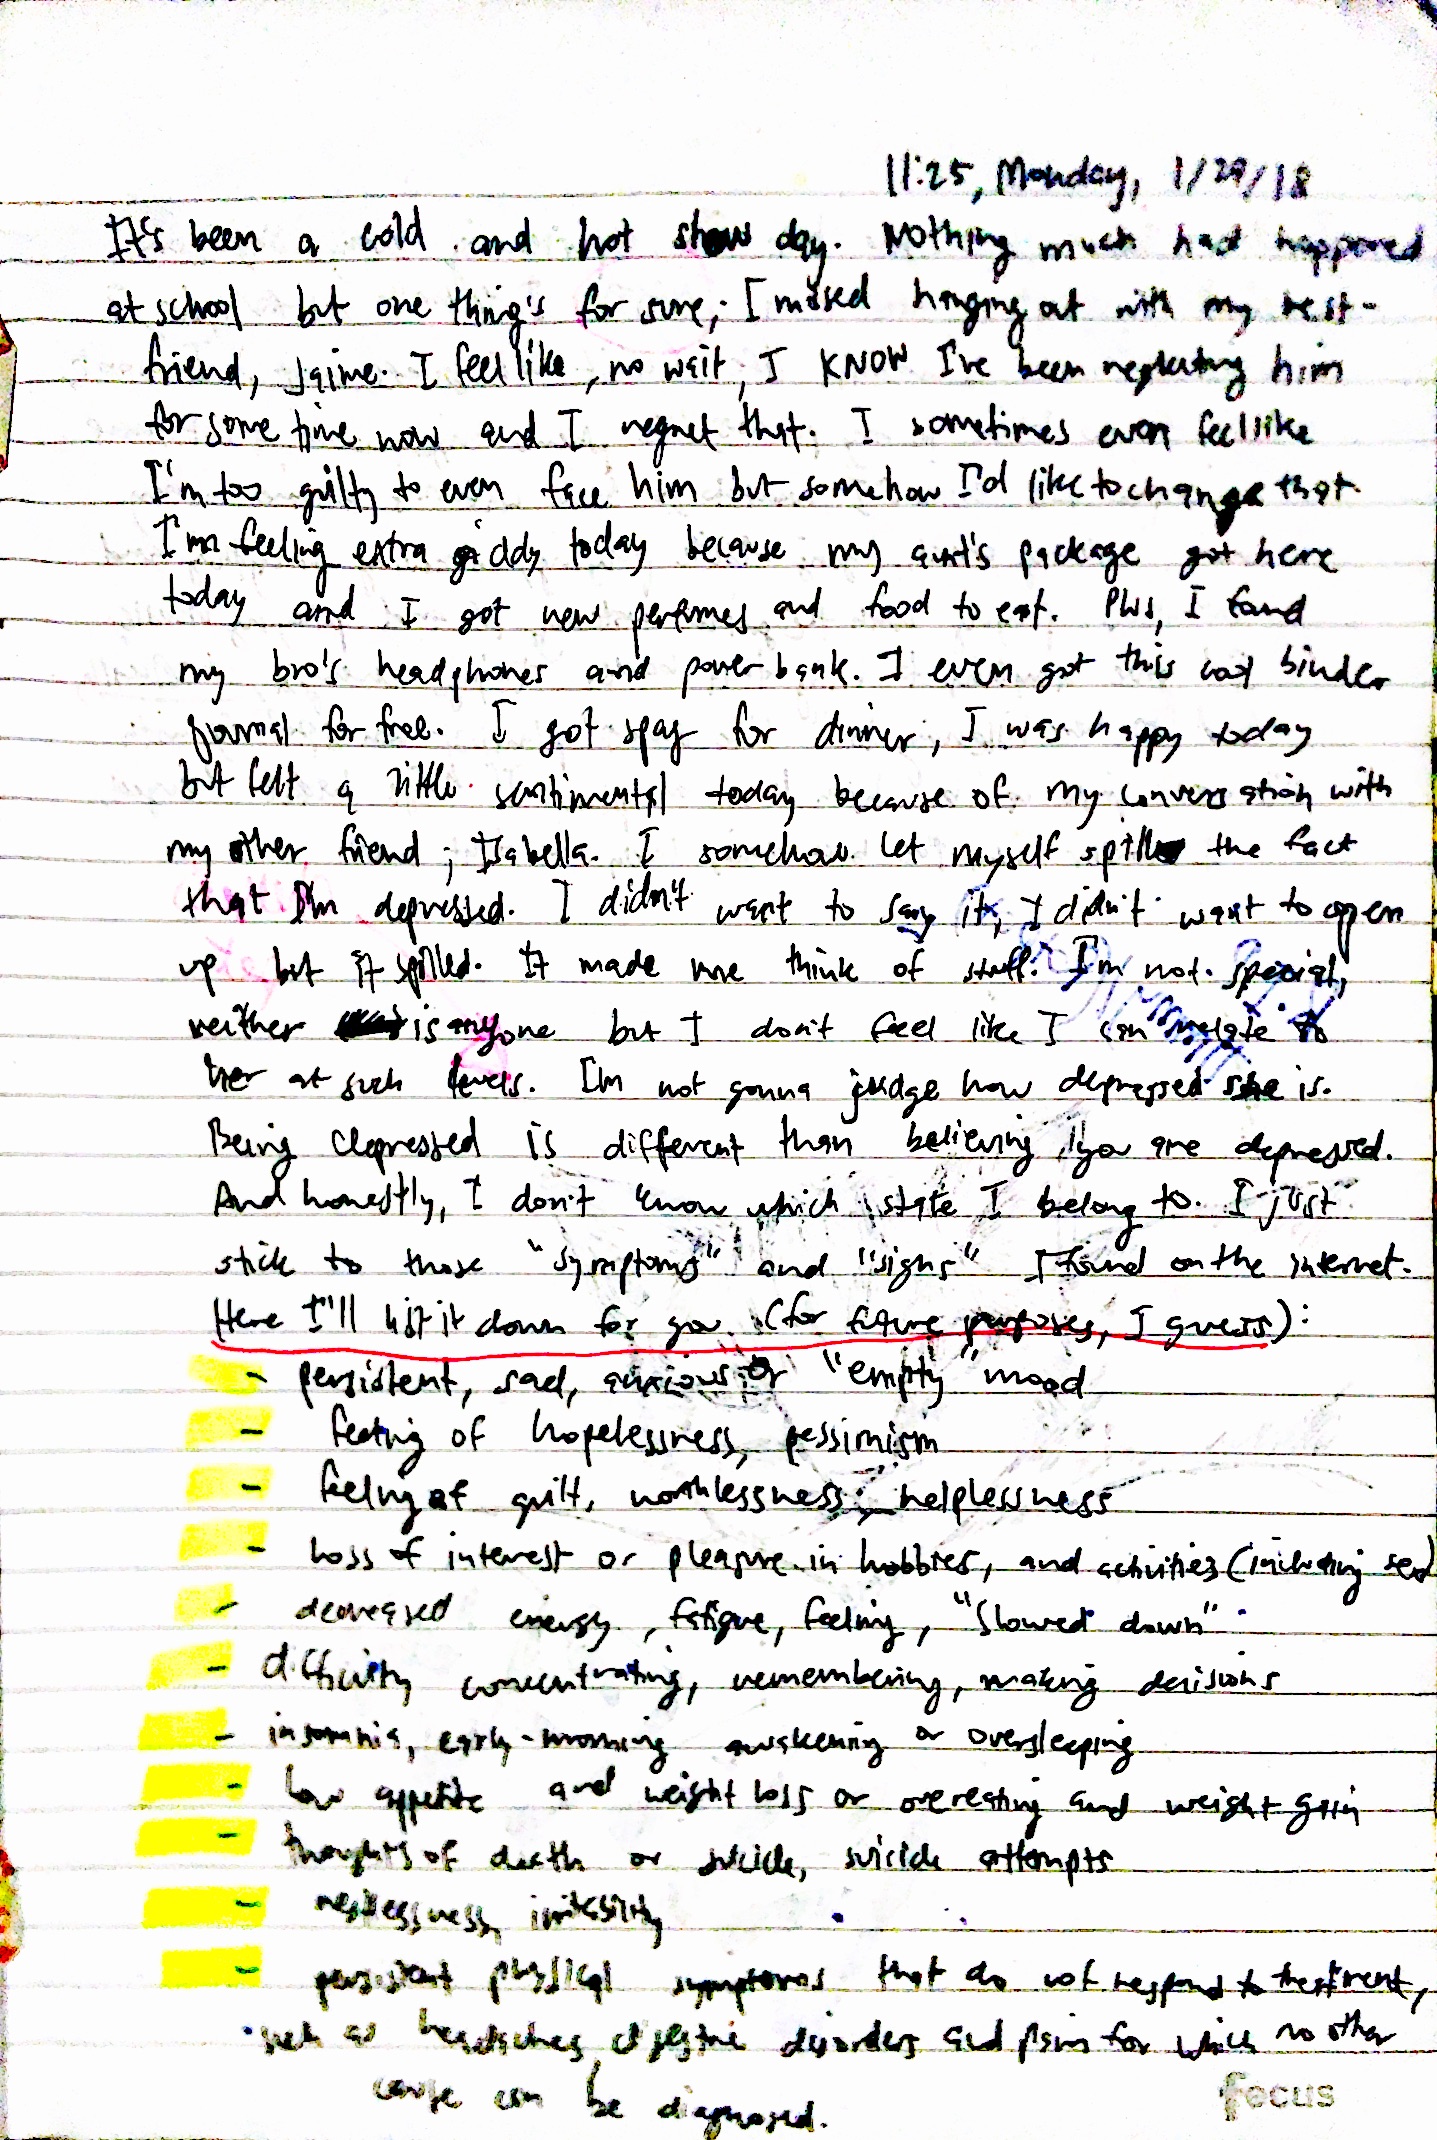 11:25, Monday, 1/29/18
It's been a cold and hot show day. Nothing much had happened
at school but one thing's for sure; I missed hanging out with my best-
friend, Jaime. I feel like, no wait, I KNOW I've been neglecting him
for some time now and I regret that. I sometimes even feel like
I'm too guilty to even face him but somehow I'd like to change that.
I'm feeling extra giddy today because my aunt's package got here
today and I got new perfumes and food to eat. Plus, I found
my bro's headphones and power bank. I even got this cool binder
journal for free. I got spag for dinner, I was happy today
but felt a little sentimental today because of my conversation with
my other friend; Isabella. I somehow let myself spill the fact
that I'm depressed. I didn't want to say it, I didn't want to open
up but it spilled. It made me think of stuff. I'm not special,
neither is anyone but I don't feel like I can relate to
her at such levels. I'm not gonna judge how depressed she is.
Being depressed is different than believing you are depressed.
And honestly, I don't know which state I belong to. I just
stick to those "symptoms" and "signs" I found on the internet.
Here I'll list it down for you (for future purposes, I guess):
- persistent, sad, anxious or "empty" mood
- feeling of hopelessness, pessimism
- feeling of guilt, worthlessness, helplessness
- loss of interest or pleasure in hobbies, and activities (including sex)
- decreased energy, fatigue, feeling, "slowed down"
- difficulty concentrating, remembering, making decisions
- insomnia, early-morning awakening or oversleeping
- low appetite and weight loss or overeating and weight gain
- thoughts of death or suicide, suicide attempts
- restlessness, irritability
- persistent physical symptoms that do not respond to treatment,
such as headaches, digestive disorders and pain for which no other
cause can be diagnosed.
focus